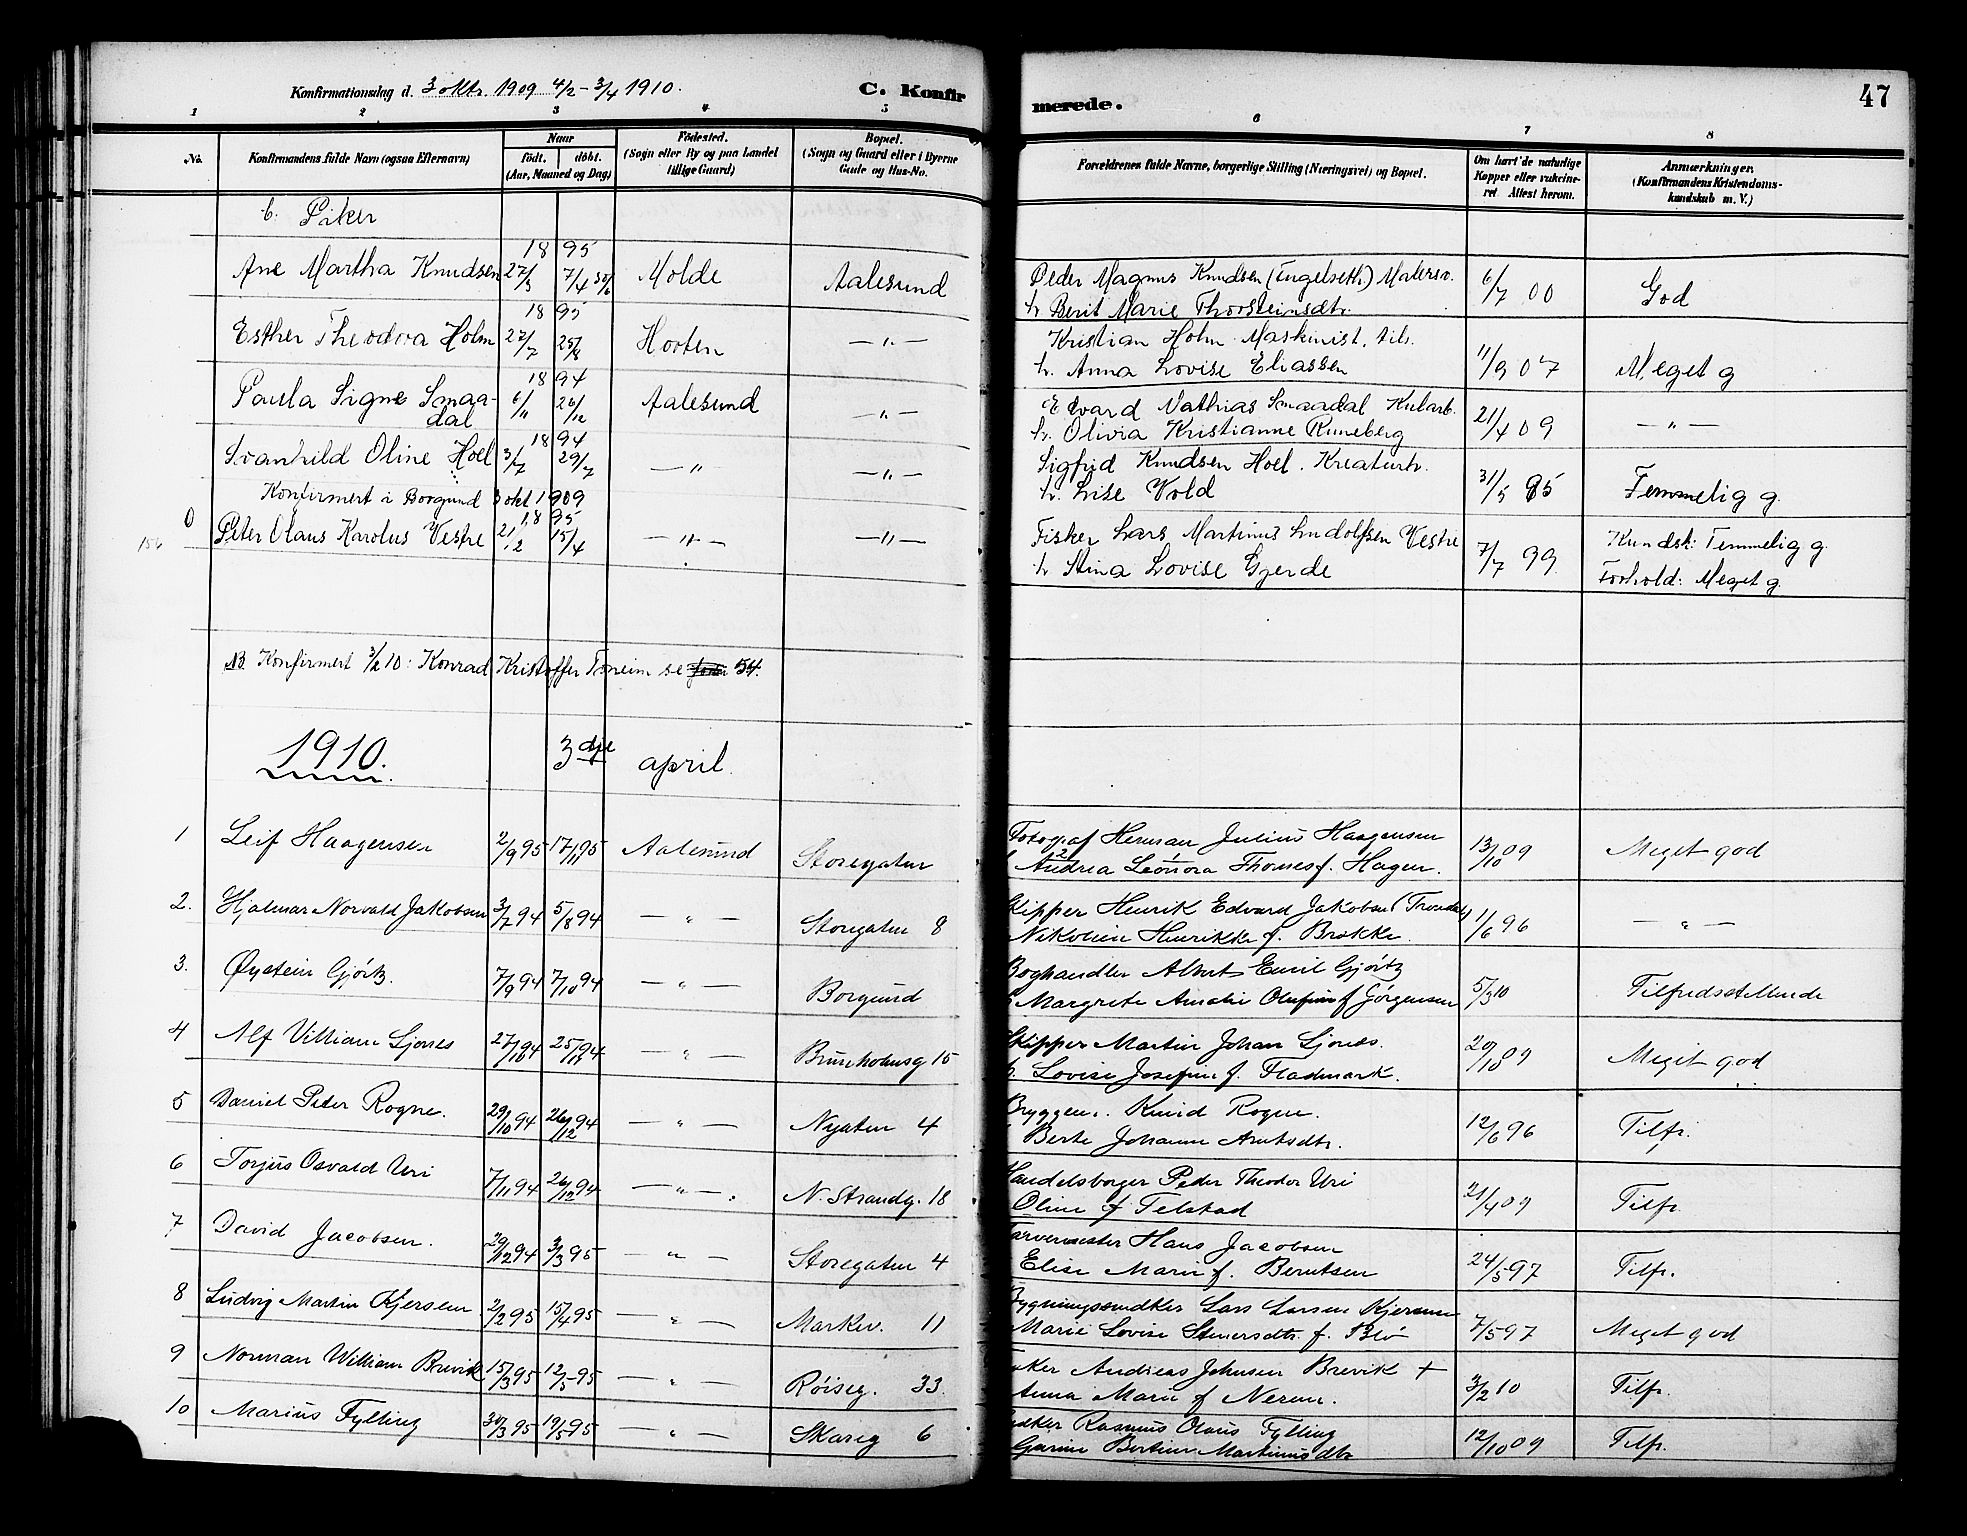 Konfirmationsdag d. 3 oktr. 1909 4/2 - 3/4 1910. C. Konfirmerede. 47
1 2 3 4 5 6 7 8
No. Konfirmandens fulde Navn (ogsaa Efternavn) Naar født. døbt. (Aar, Maaned og Dag) Fødested. (Sogn eller By og paa Landet tillige Gaard) Bopæl. (Sogn og Gaard eller i Byerne Gade og Hus-No. Forældrenes fulde Navne, borgerlige Stilling (Næringsvei) og Bopæl. Om havt de naturlige Kopper eller vakcineret Attest herom. Anmærkninger. (Konfirmandens Kristendomskundskab m. V.)
b. Piker
18 95
Ane Martha Knudsen 27/3 7/4 Molde Aalesund Peder Magnus Knudsen (Engelseth) Malersv. 6/7 00 God
h. Berit Marie Thorsteinsdtr.
18 95
Esther Theodora Holm 27/7 25/8 Horten — " — Kristian Holm Maskinist. 11/9 07 Meget g
h. Anna Lovise Eliassen
18 94
Paula Signe Smaadal 6/11 26/12 Aalesund — " — Edvard Mathias Smaadal Kularb. 21/4 09 — " —
h. Olivia Kristianne Runeberg
18 94
Svanhild Oline Hoel 3/7 29/7 — " — " — Sigfrid Knudsen Hoel. Kreaturh. 31/5 95 Temmelig g.
h. Lise Vold
Konfirmert i Borgund 3 okt 1909
18 95
0 156 Peter Olaus Karolus Vestre 21/12 15/4 — " — — " — Fisker Lars Martinus Ludolfsen Vestre 7/7 99 Kundsk: Temmelig g.
h. Stina Lovise Gjerde Forhold: Meget g.
NB. Konfirmert 3/2 10: Konrad Kristoffer Toneim se 54.
1910. 3dje april.
1 Leif Haagensen 2/9 95 17/11 95 Aalesund Storegaten Fotograf Herman Julius Haagensen 13/10 09 Meget god
Andrea Leonora Thomesf. Hagen.
2. Hjalmar Norvald Jakobsen 3/7 94 5/8 94 — " — Storegaten 8 Skipper Henrik Edvard Jakobsen 1/6 96 — " —
Nikoline Henrikke f. Brokke.
3. Øystein Gjørtz. 7/9 94 7/10 94 — " — Borgund Boghandler Albert Emil Gjørtz 5/3 10 Tilfredsstillende
Margrete Amalie Olufine f Jørgensen
4 Alf Villiam Sjones 27/10 94 25/12 94 — " — Brunholmsg 15 Skipper Martin Johan Sjones. 20/10 09 Meget god
h. Lovise Josefine f. Fladmark.
5 Daniel Peter Rogne. 29/10 94 26/12 94 — " — Nygaten 4 Bryggem. Knud Rogne. 12/6 96 Tilfr.
Berte Johanne Amtsdtr.
6 Torjus Osvald Uri 7/11 94 26/12 94 — " — . N. Strandg. 18 Handelsborger Peder Theodor Uri 21/4 09 Tilfr.
Oline f Telstad
7 David Jacobsen. 29/12 94 3/3 95 — " — Storegaten 4 Farvermester Hans Jacobsen 24/5 97 Tilfr.
Elise Marie f. Berntsen
8 Ludvig Martin Kjersem 2/2 95 15/4 95 — " — Markev. 11 Bygningssndker Lars Larsen Kjersem 7/5 97 Meget god
Marie Lovise Stenersdtr. f. Blø
9 Norman William Brevik 15/3 95 12/5 95 — " — Røiseg. 33. Andreas Johnsen Brevik + 3/2 10 Tilfr.
Anna Marie f Nerem.
10 Marius Fylling 30/3 95 19/5 95 — " — Skareg 6 Rasmus Olaus Fylling 12/10 09 Tilfr.
Gurine Bertine Martinusdtr